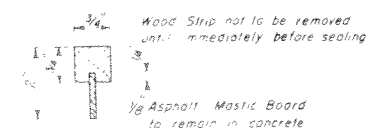 3/4"
Wood Strip not to be removed
immediately before sealing
1/8 Asphalt Mastic Board
to remain in concrete